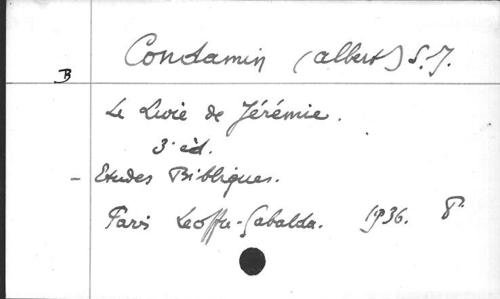 Condamin (Albert) S. J.
B
Le Livre de Jérémie.
3e éd.
- Etudes Bibliques.
Paris Lecoffre-Gabalda. 1936. 8°